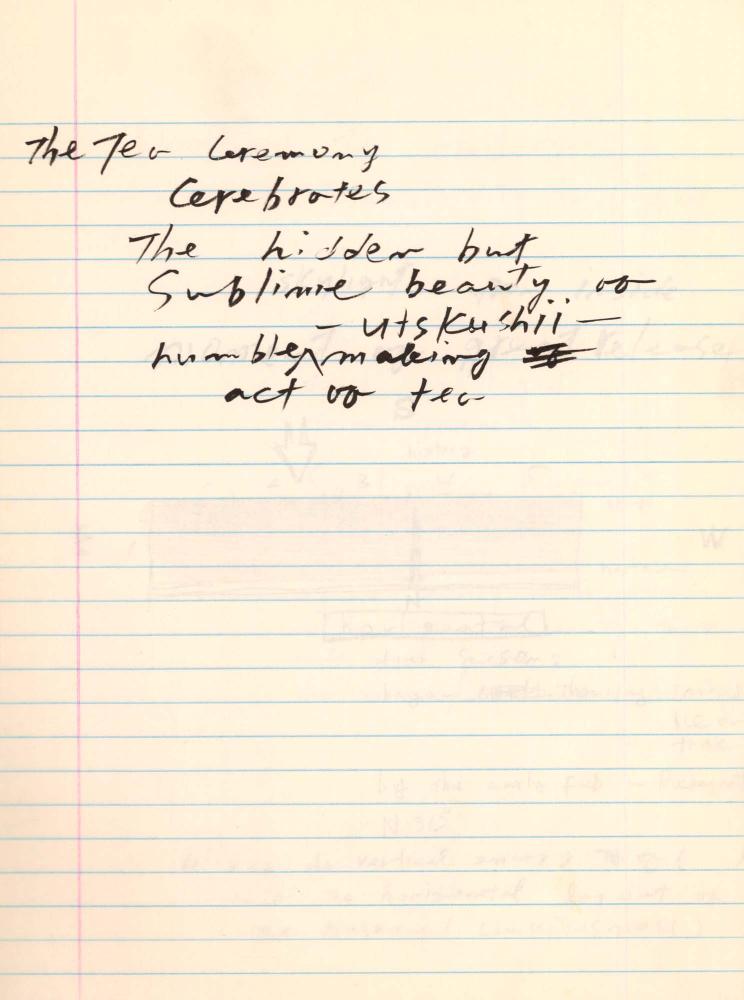 The Tea Ceremony
Cerebrates
The hidden but
Sublime beauty of
– utskushii –
humbley making
act of tea